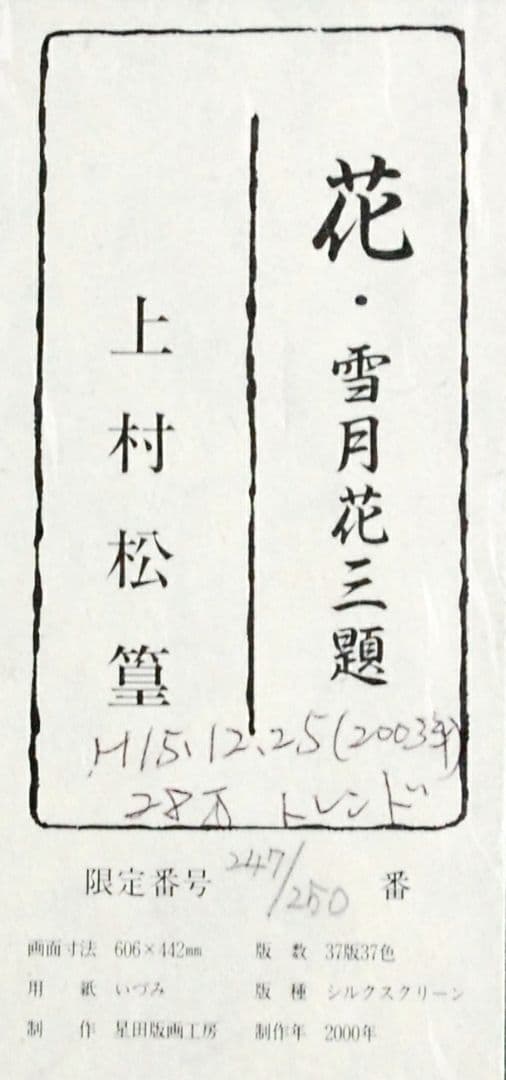 花・雪月花三題
上村松篁
H15.12.25(2003年)
28万 トレンド
限定番号 247/250 番
画面寸法 606×442㎜ 版数 37版37色
用紙 いづみ 版種 シルクスクリーン
制作 星田版画工房 制作年 2000年